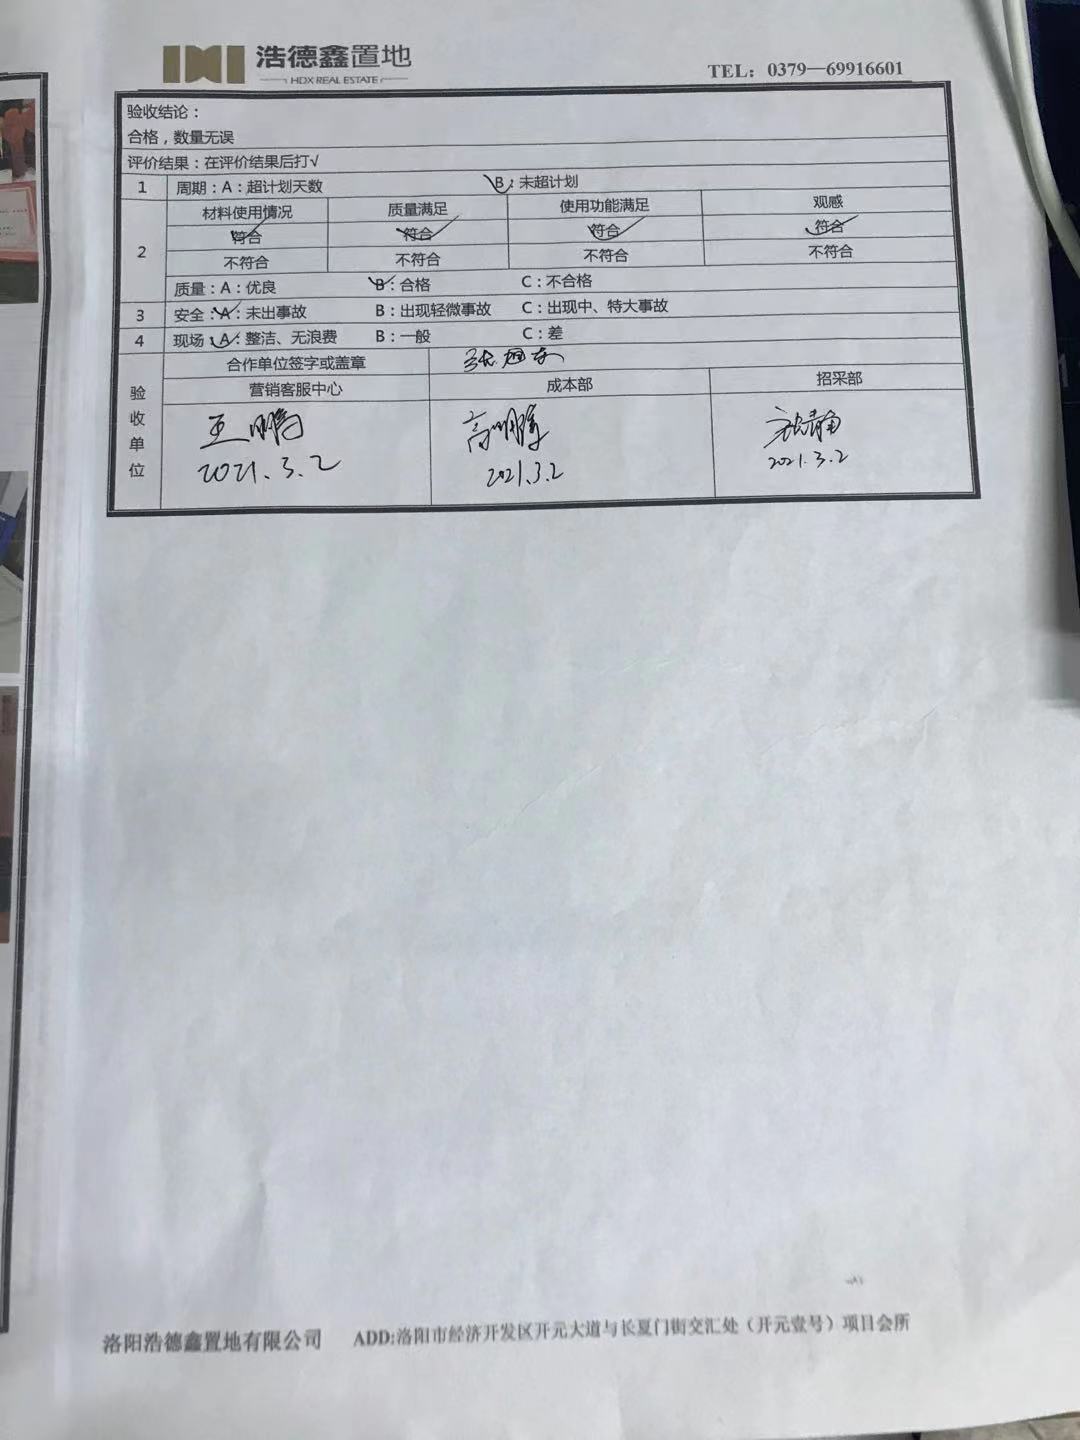 浩德鑫置地
HDX REAL ESTATE
TEL：0379—69916601
验收结论：
合格，数量无误
评价结果：在评价结果后打√
1 周期：A：超计划天数 B：未超计划
材料使用情况 质量满足 使用功能满足 观感
符合 符合 符合 符合
2
不符合 不符合 不符合 不符合
质量：A：优良 B：合格 C：不合格
3 安全：A：未出事故 B：出现轻微事故 C：出现中、特大事故
4 现场：A：整洁、无浪费 B：一般 C：差
合作单位签字或盖章 张旭东
验收单位 营销客服中心 成本部 招采部
王鹏 高明隆
2021.3.2 2021.3.2 2021.3.2
洛阳浩德鑫置地有限公司 ADD:洛阳市经济开发区开元大道与长夏门街交汇处（开元壹号）项目会所